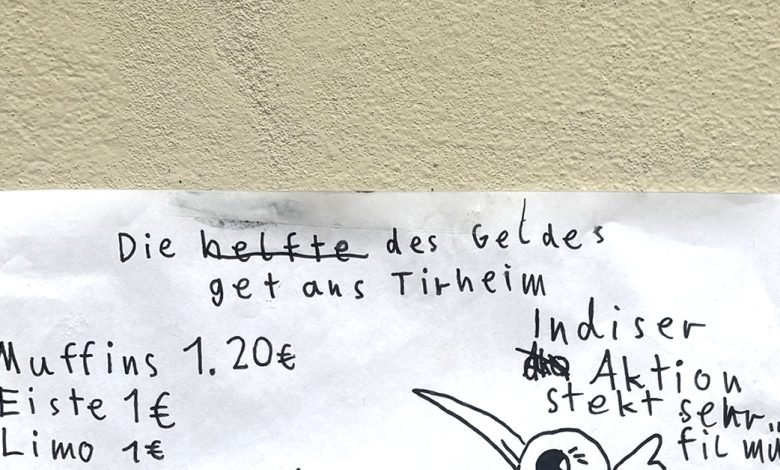 Die helfte des Geldes
get ans Tirheim
Muffins 1.20€
Eiste 1€
Limo 1€
Indiser
Aktion
stekt sehr
fil mü